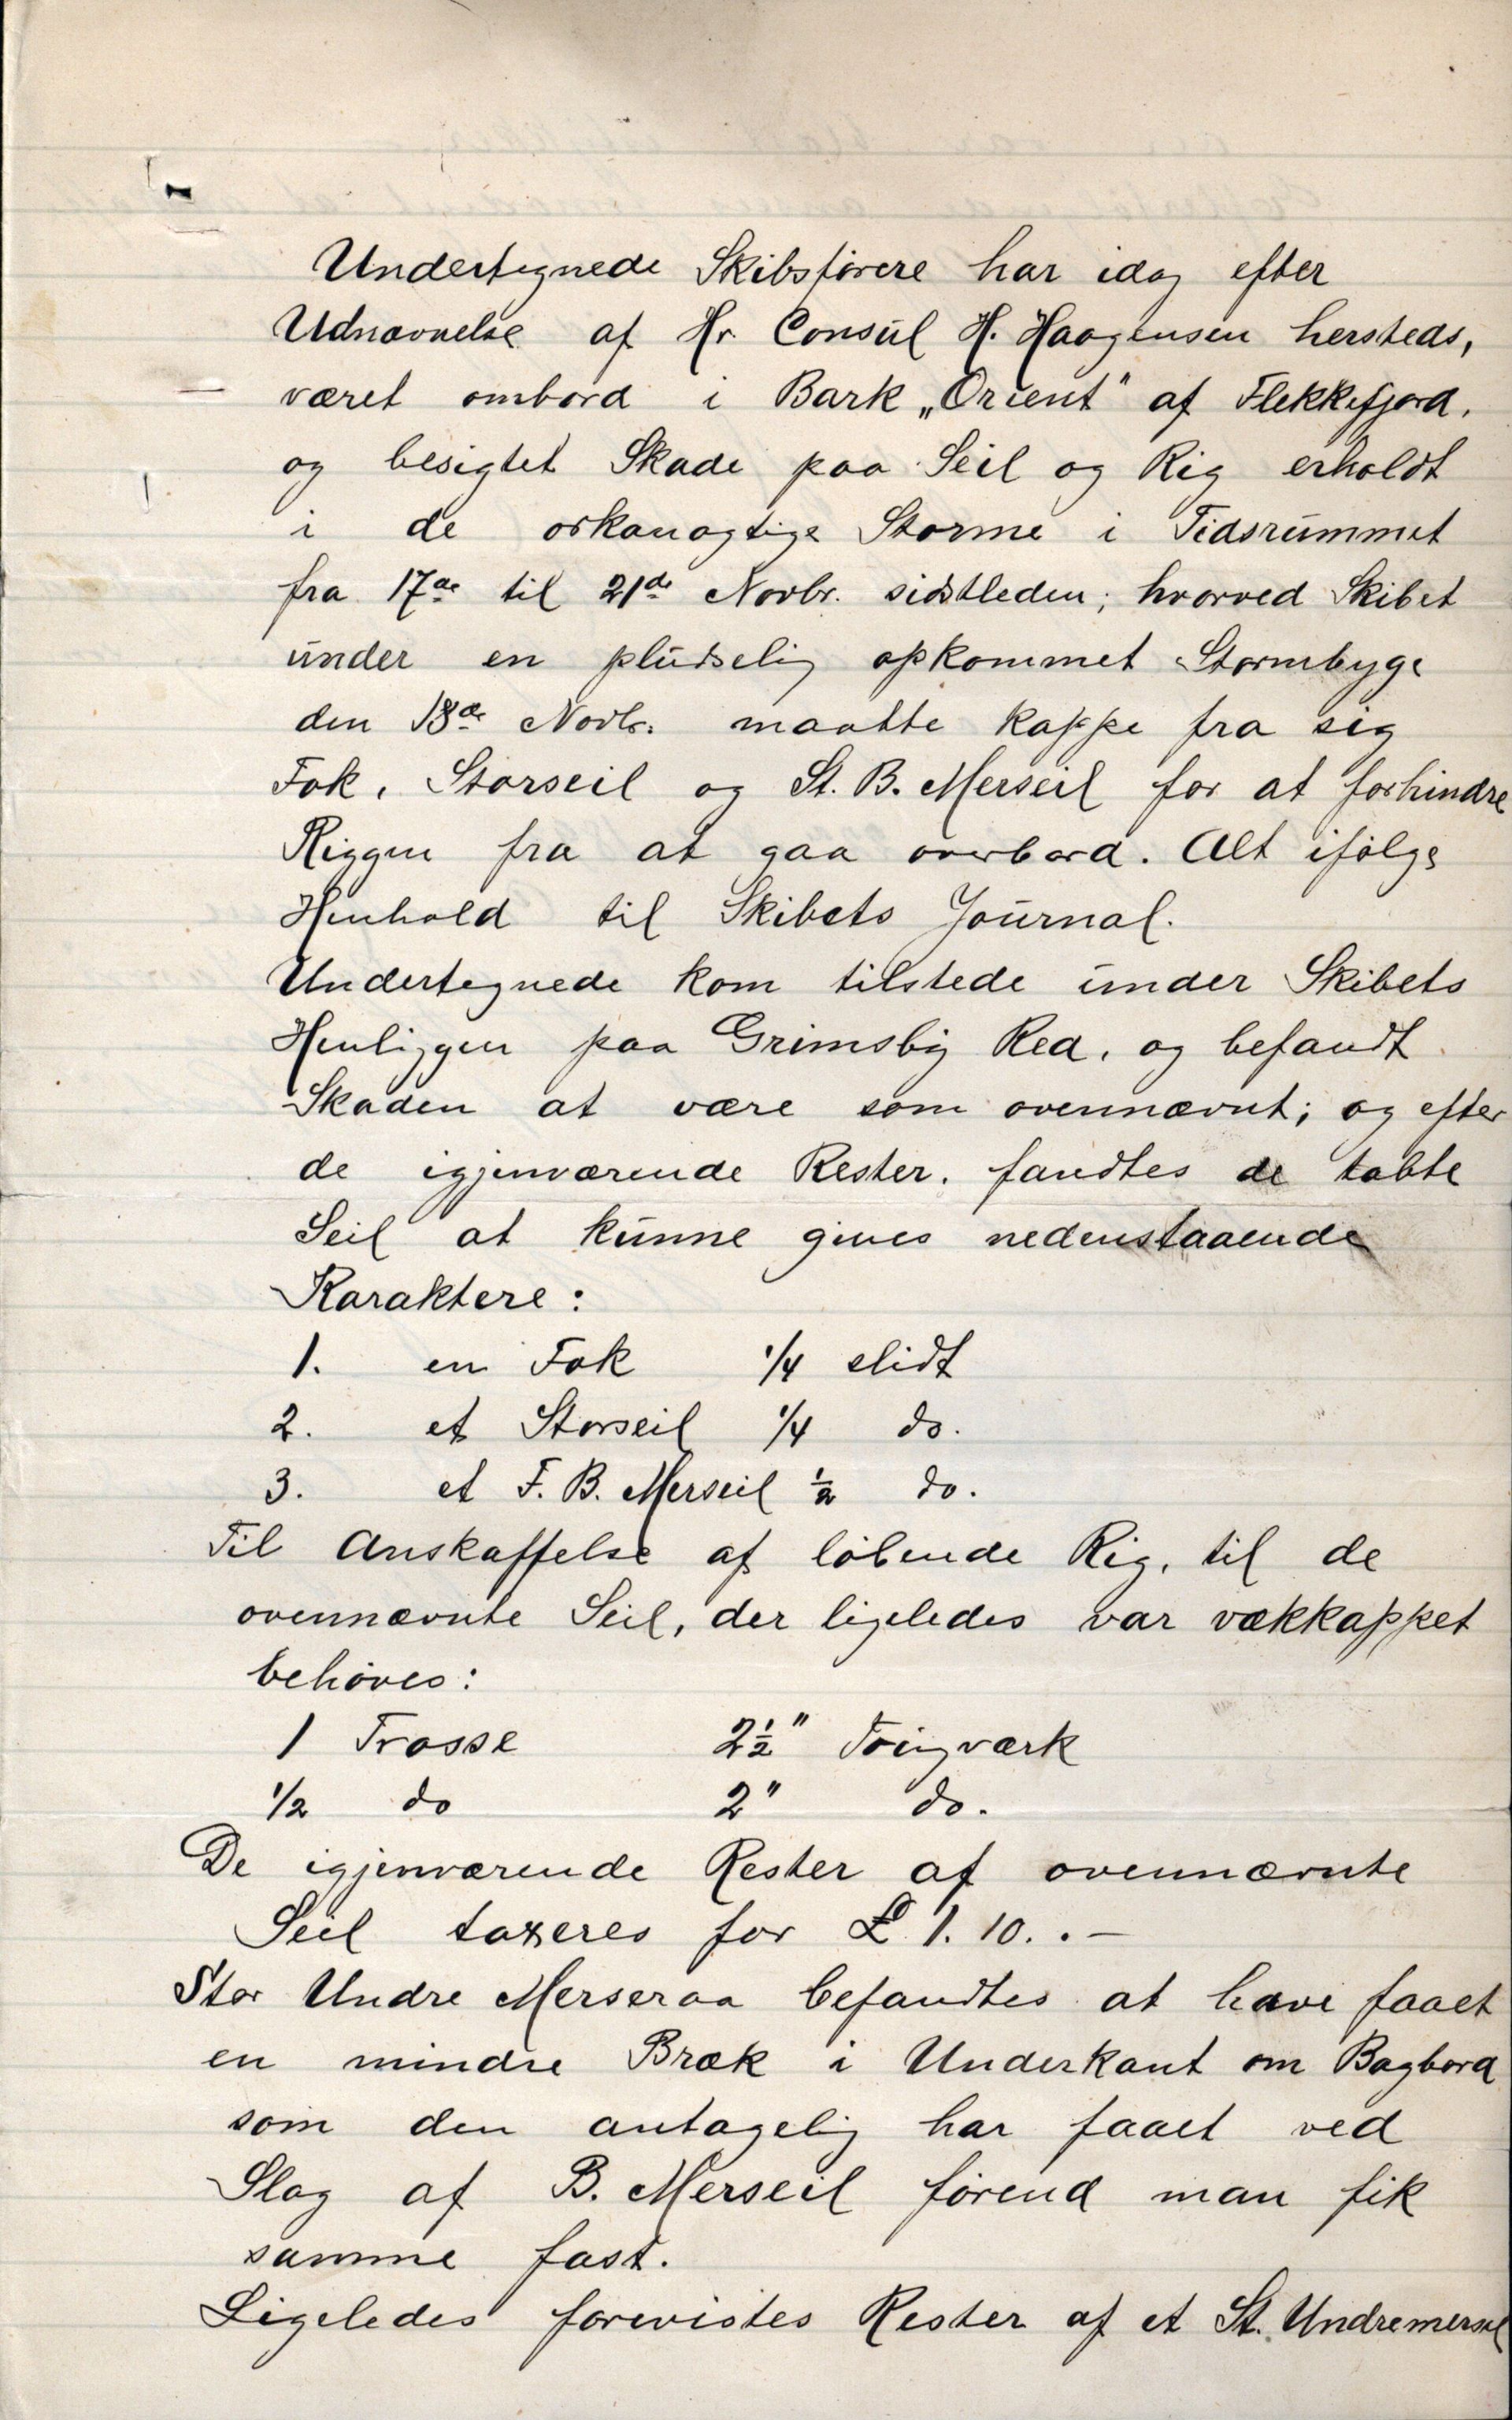 Undertegnede Skibsførere har idag efter
Udnævnelse af Hr. Consul H. Haagensen hersteds,
været ombord i Bark „Orient" af Flekkefjord,
og besigtet Skade paa Seil og Rig erholdt
i de orkanagtige Storme i Tidsrummet
fra 17de til 21de Novbr. sidstleden; hvorved Skibet
under en pludselig opkommet Stormbyge
den 18de Novbr. maatte kappe fra sig
Fok, Storseil og St. B. Merseil for at forhindre
Riggen fra at gaa overbord. Alt ifølge
Henhold til Skibets Journal.
Undertegnede kom tilstede under Skibets
Henliggen paa Grimsby Red, og befandt
Skaden at være som ovennævnt; og efter
de igjenværende Rester, fandtes de tabte
Seil at kunne gives nedenstaaende
Karaktere:
1. en Fok 1/4 slidt
2. et Storseil 1/4 do.
3. et F. B. Merseil 1/2 do.
Til Anskaffelse af løbende Rig, til de
ovennævnte Seil, der ligeledes var vækkappet
behøves:
1 Trosse 2 1/2" Toigværk
1/2 do 2" do.
De igjenværende Rester af ovennævnte
Seil taxeres for £ 1. 10. . –
Stor Undre Merseraa befandtes at have faaet
en mindre Bræk i Underkant om Bagbord
som den antagelig har faaet ved
Slag af B. Merseil førend man fik
samme fast.
Ligeledes forevistes Rester af et St. Undremerseil